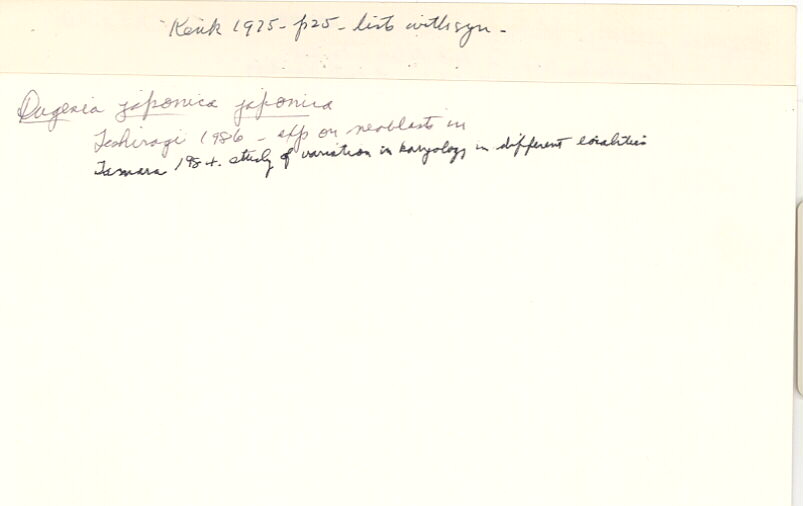 Kenk 1975 - p25 - lists with syn -
Dugesia japonica japonica
Teshirogi 1986 - exp on neoblasts in
Tamura 1984. study of variation in karyology in different localities